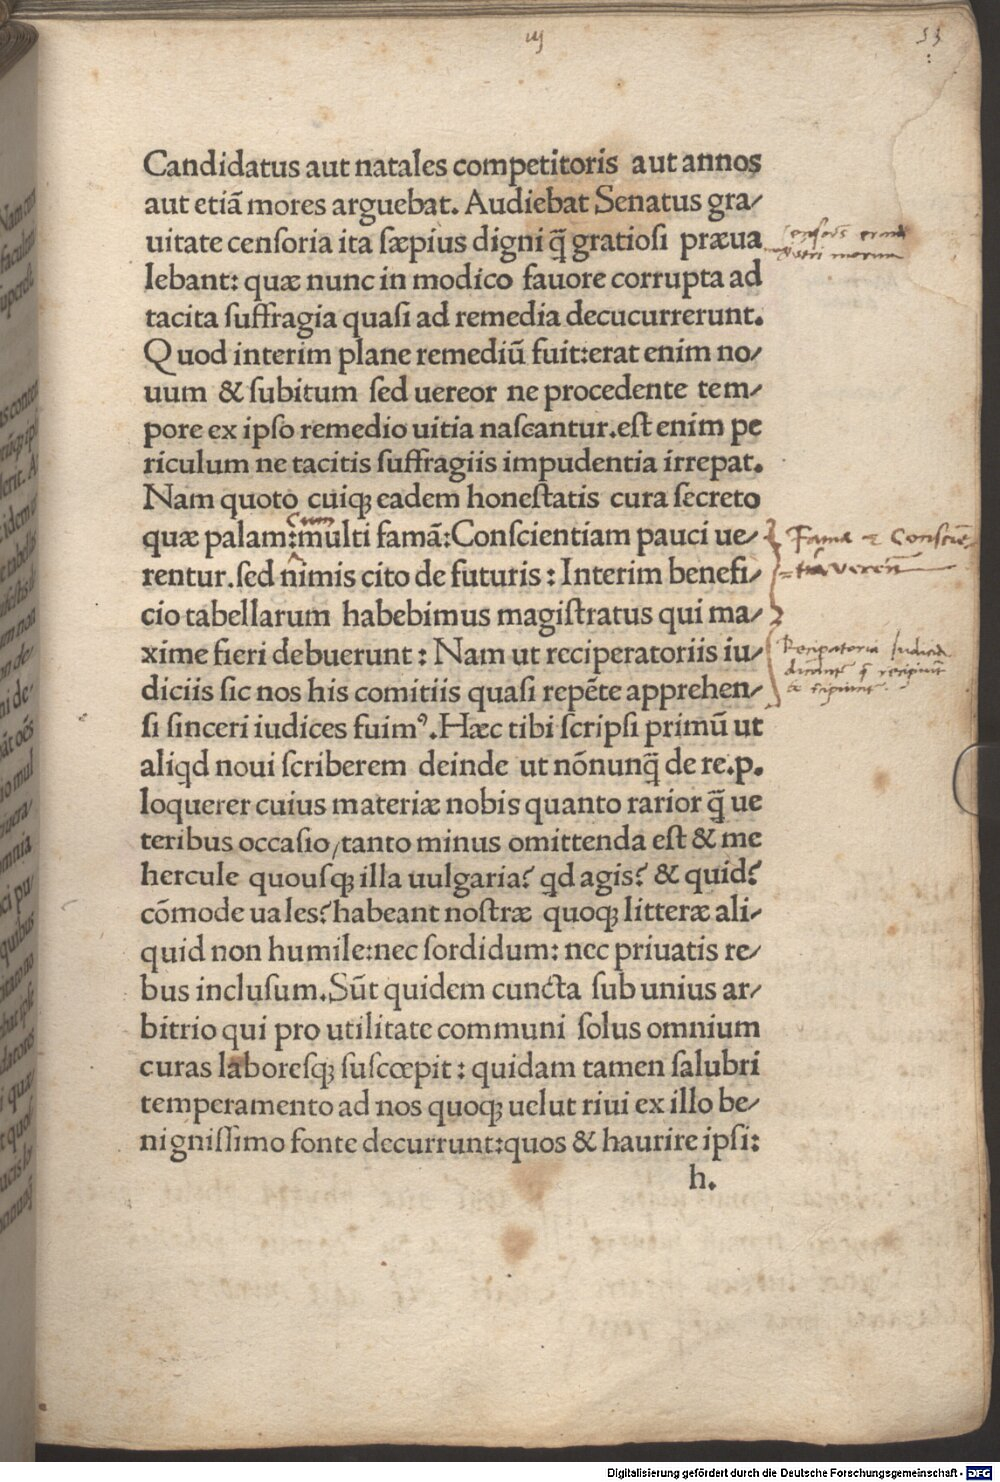 iij
53
Candidatus aut natales competitoris aut annos
aut etiã mores arguebat. Audiebat Senatus gra/
uitate cenſoria ita ſæpius digni q̃ gratioſi præua
lebant: quæ nunc in modico fauore corrupta ad
tacita ſuffragia quaſi ad remedia decucurrerunt.
Quod interim plane remediũ fuit:erat enim no/
uum & ſubitum ſed uereor ne procedente tem/
pore ex ipſo remedio uitia naſcantur.eſt enim pe
riculum ne tacitis ſuffragiis impudentia irrepat.
Nam quoto cuiqꝫ eadem honeſtatis cura ſecreto
cum
quæ palam:multi famã:Conſcientiam pauci ue/
rentur.ſed nimis cito de futuris: Interim benefi/
cio tabellarum habebimus magiſtratus qui ma/
xime fieri debuerunt: Nam ut reciperatoriis iu/
diciis ſic nos his comitiis quaſi repẽte apprehen/
ſi ſinceri iudices fuimꝰ. Hæc tibi ſcripſi primũ ut
aliqd noui ſcriberem deinde ut nõnunq̃ de re.p.
loquerer cuius materiæ nobis quanto rarior q̃ ue
teribus occaſio/tanto minus omittenda eſt & me
hercule quouſqꝫ illa uulgaria? qd agis? & quid?
cõmode uales?habeant noſtræ quoqꝫ litteræ ali/
quid non humile:nec ſordidum: nec priuatis re/
bus incluſum.Sũt quidem cuncta ſub unius ar/
bitrio qui pro utilitate communi ſolus omnium
curas laboreſqꝫ ſuſcœpit: quidam tamen ſalubri
temperamento ad nos quoqꝫ uelut riui ex illo be/
nigniſſimo fonte decurrunt:quos & haurire ipſi:
h.
morum
Fama Consciẽ
Iudicia
Digitalisierung gefördert durch die Deutsche Forschungsgemeinschaft - DFG